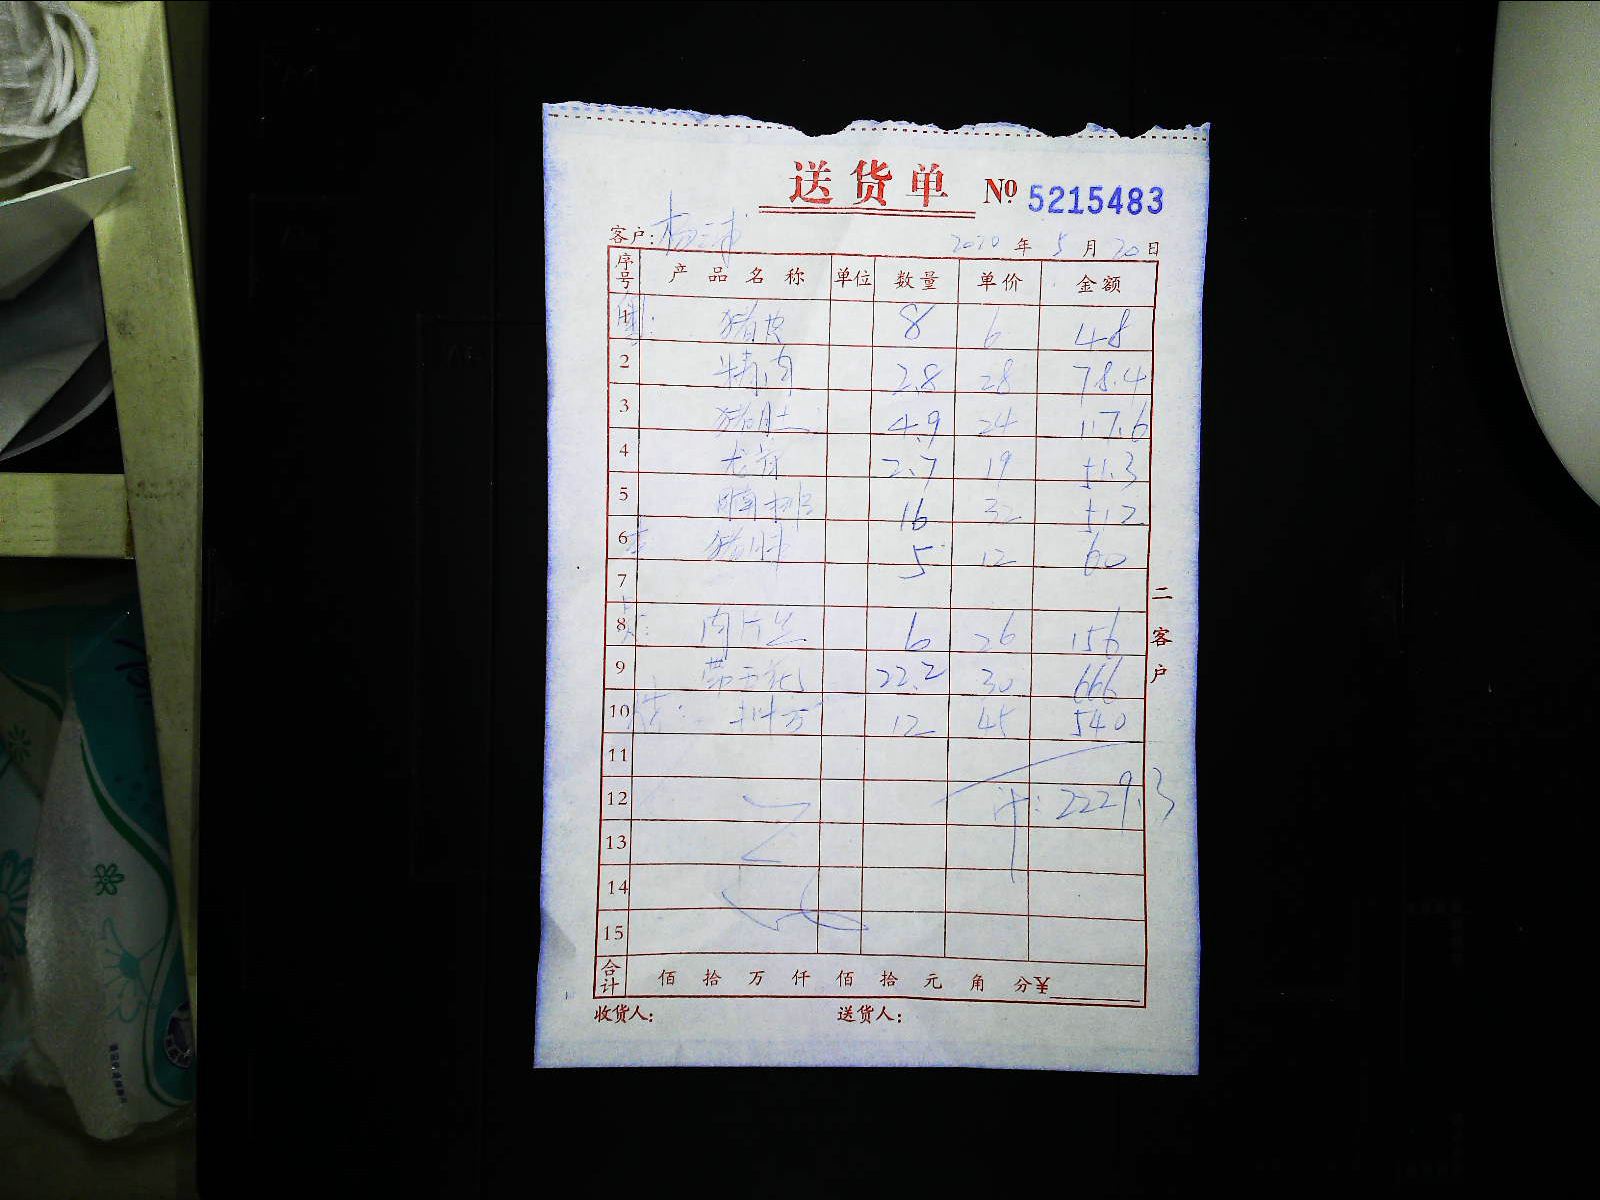 送货单 № 5215483
客户: 2020 年 5 月 20 日
序号 产品名称 单位 数量 单价 金额
1 猪皮 8 6 48
2 精肉 2.8 28 78.4
3 猪肚 4.9 24 117.6
4 龙骨 2.7 19 51.3
5 腩排 16 32 512
6 猪肺 5 12 60
7
8 肉片 6 26 156
9 22.2 30 666
10 12 45 540
11
12 计: 2229.3
13
14
15
合计 佰 拾 万 仟 佰 拾 元 角 分 ¥
收货人: 送货人:
二客户